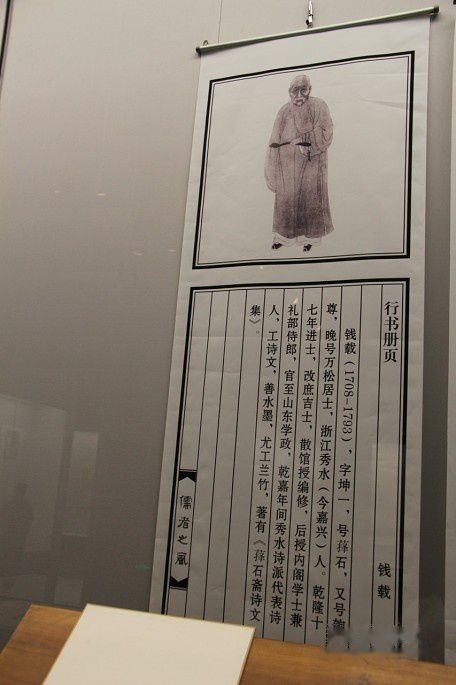 行书册页
钱载
钱载（1708-1793），字坤一，号萚石，又号匏
尊，晚号万松居士，浙江秀水（今嘉兴）人。乾隆十
七年进士，改庶吉士，散馆授编修，后授内阁学士兼
礼部侍郎，官至山东学政，乾嘉年间秀水诗派代表诗
人，工诗文，善水墨，尤工兰竹，著有《萚石斋诗文
集》。
儒者之風